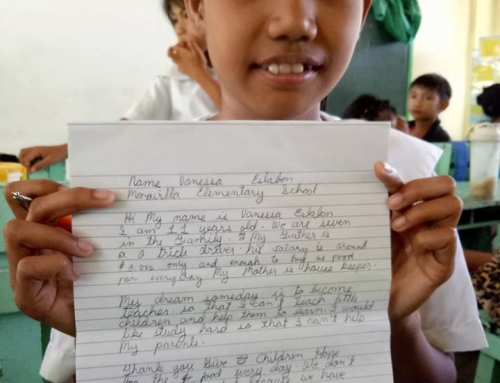 Name Vanessa Eslabon
Monaville Elementary School
Hi My name is Vanessa Eslabon
I am 11 years old. We are seven
in the family. My father is
a tricle driver his salary is around
only and enough to buy us food
for everyday. My Mother is house keeper.
My dream someday is to become
teacher. so that I can't teach little
children and help them to learn. I would
like study hard so that I can't help
My parents.
Thank you Give Children Hope
for the food every day. We don't
because we have